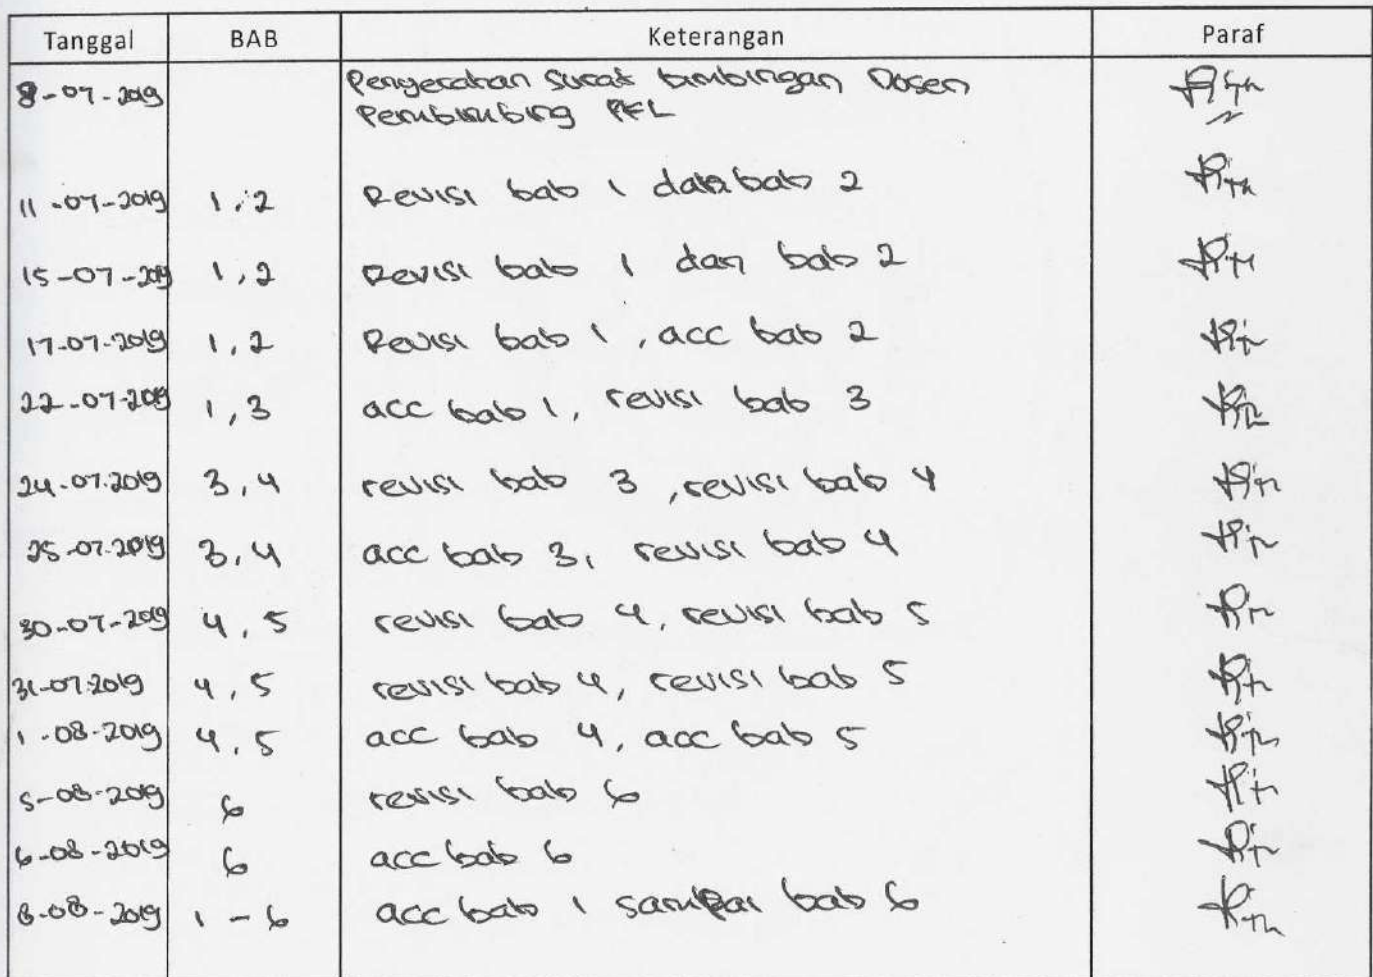 Tanggal BAB Keterangan Paraf
8-07-2019 Penyerahan Surat bimbingan Dosen
Pembimbing PKL
11-07-2019 1,2 Revisi bab 1 dan bab 2
15-07-2019 1,2 Revisi bab 1 dan bab 2
17-07-2019 1,2 Revisi bab 1, acc bab 2
22-07-2019 1,3 acc bab 1, revisi bab 3
24-07-2019 3,4 revisi bab 3, revisi bab 4
25-07-2019 3,4 acc bab 3, revisi bab 4
30-07-2019 4,5 revisi bab 4, revisi bab 5
31-07-2019 4,5 revisi bab 4, revisi bab 5
1-08-2019 4,5 acc bab 4, acc bab 5
5-08-2019 6 revisi bab 6
6-08-2019 6 acc bab 6
8-08-2019 1-6 acc bab 1 sampai bab 6